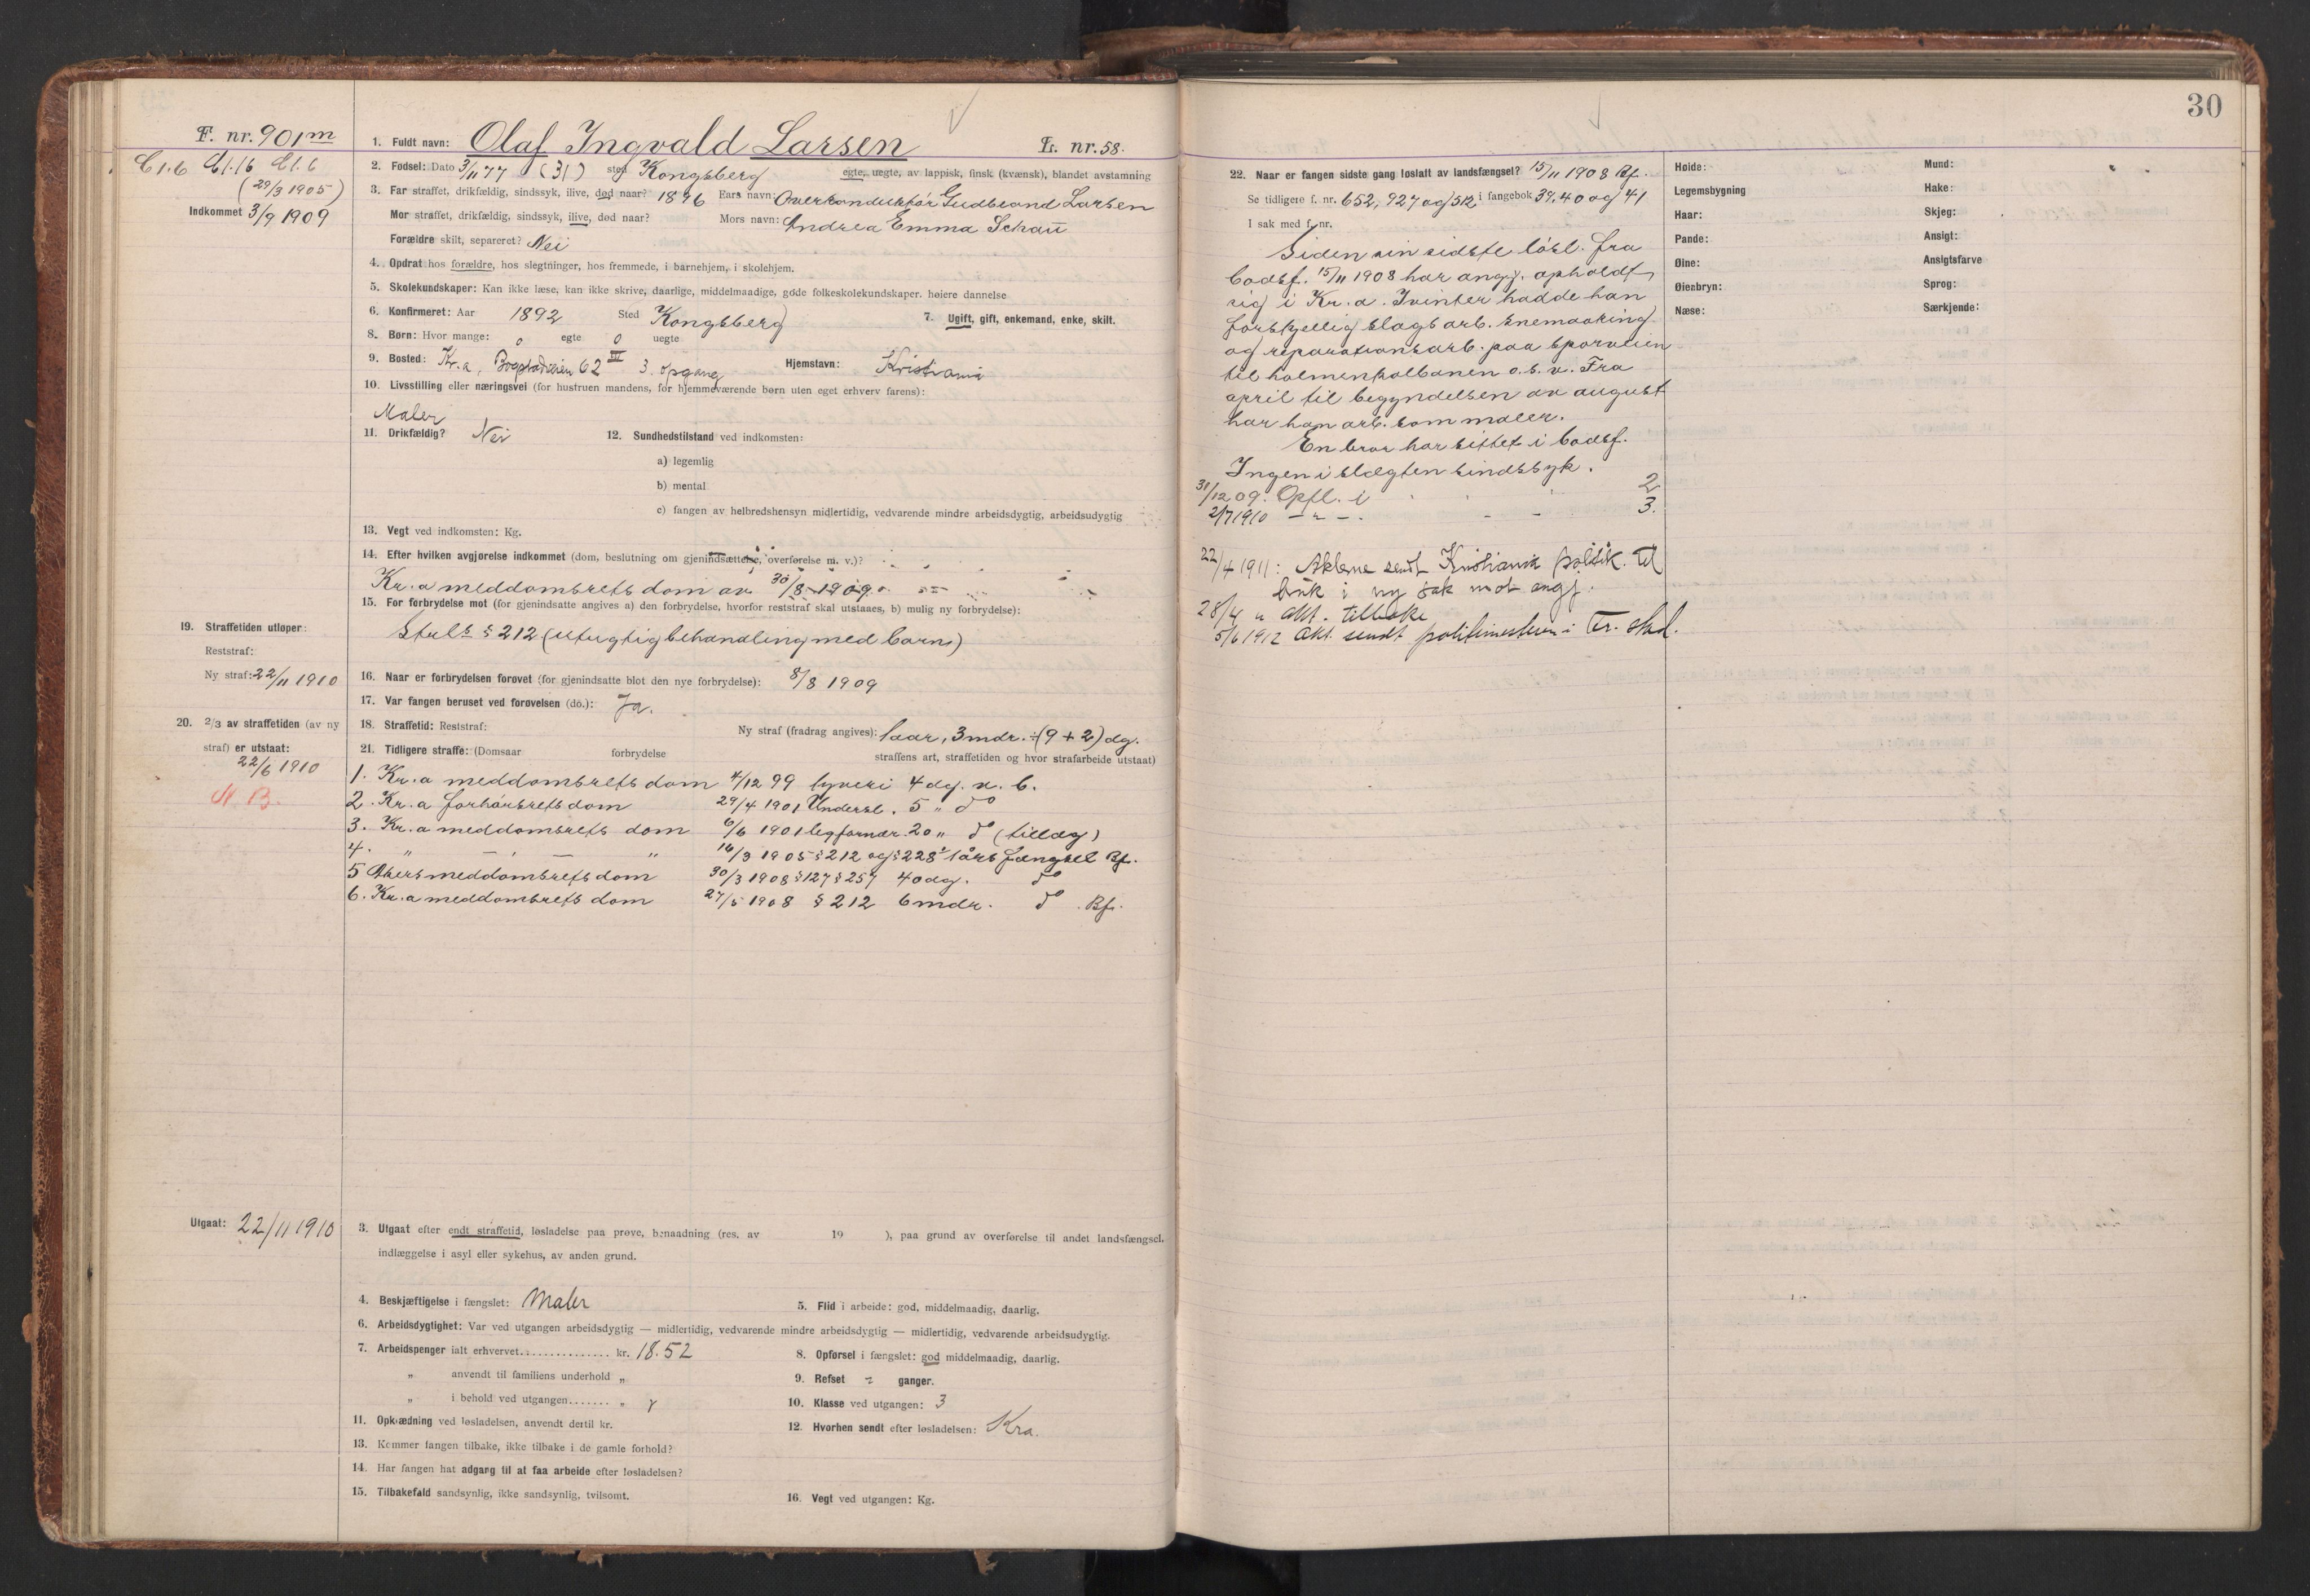 F. nr. 901 m
Cl. 6 Cl. 16 Cl. 6
(29/3 1905)
Indkommet 3/9 1909
1. Fuldt navn: Olaf Ingvald Larsen L. nr. 58.
2. Fødsel: Dato 3/11 77 (31) sted Kongsberg egte, uegte, av lappisk, finsk (kvænsk), blandet avstamning
3. Far straffet, drikfældig, sindssyk, ilive, død naar? 1896 Fars navn: Overkonduktør Gudbrand Larsen
Mor straffet, drikfældig, sindssyk, ilive, død naar? Mors navn: Andrea Emma Schau
Forældre skilt, separeret? Nei
4. Opdrat hos forældre, hos slegtninger, hos fremmede, i barnehjem, i skolehjem.
5. Skolekundskaper: Kan ikke læse, kan ikke skrive, daarlige, middelmaadige, gode folkeskolekundskaper. høiere dannelse
6. Konfirmeret: Aar 1892 Sted Kongsberg 7. Ugift, gift, enkemand, enke, skilt.
8. Børn: Hvor mange: 0 egte 0 uegte
9. Bosted: Kr.a, Bogstadveien 62 III 3. opgang Hjemstavn: Kristiania
10. Livsstilling eller næringsvei (for hustruen mandens, for hjemmeværende børn uten eget erhverv farens):
Maler
11. Drikfældig? Nei 12. Sundhedstilstand ved indkomsten:
a) legemlig
b) mental
c) fangen av helbredshensyn midlertidig, vedvarende mindre arbeidsdygtig, arbeidsudygtig
13. Vegt ved indkomsten: Kg.
14. Efter hvilken avgjørelse indkommet (dom, beslutning om gjenindsættelse, overførelse m. v.)?
Kr.a meddomsrets dom av 30/8 1909
15. For forbrydelse mot (for gjenindsatte angives a) den forbrydelse, hvorfor reststraf skal utstaaes, b) mulig ny forbrydelse):
Strl.s § 212 (utugtig behandling med barn)
19. Straffetiden utløper:
Reststraf:
Ny straf: 22/11 1910
16. Naar er forbrydelsen forøvet (for gjenindsatte blot den nye forbrydelse): 8/8 1909
17. Var fangen beruset ved forøvelsen (do.): Ja.
20. 2/3 av straffetiden (av ny
straf) er utstaat:
22/6 1910
N. B.
18. Straffetid: Reststraf: Ny straf (fradrag angives): 1 aar, 3 mdr. ÷ (9 + 2) dg.
21. Tidligere straffe: (Domsaar forbrydelse straffens art, straffetiden og hvor strafarbeide utstaat)
1. Kr.a meddomsrets dom 4/12 99 tyveri 4 dg. v. b.
2. Kr.a forhørsrets dom 29/4 1901 Undersl. 5 " do
3. Kr.a meddomsrets dom 6/6 1901 legfornær. 20 " do (tillæg)
4. " — " 16/3 1905 § 212 og § 228¹ 1 års fængsel Bf.
5 Akers meddomsrets dom 30/3 1908 § 127 § 257 40 dg. do
6. Kr.a meddomsrets dom 27/5 1908 § 212 6 mdr. do Bf.
Utgaat: 22/11 1910
3. Utgaat efter endt straffetid, løsladelse paa prøve, benaadning (res. av 19 ), paa grund av overførelse til andet landsfængsel.
indlæggelse i asyl eller sykehus, av anden grund.
4. Beskjæftigelse i fængslet: Maler 5. Flid i arbeide: god, middelmaadig, daarlig.
6. Arbeidsdygtighet: Var ved utgangen arbeidsdygtig — midlertidig, vedvarende mindre arbeidsdygtig — midlertidig, vedvarende arbeidsudygtig.
7. Arbeidspenger ialt erhvervet............... kr. 18.52 8. Opførsel i fængslet: god middelmaadig, daarlig.
" anvendt til familiens underhold " 9. Refset ganger.
" i behold ved utgangen....... " 10. Klasse ved utgangen: 3
11. Opklædning ved løsladelsen, anvendt dertil kr. 12. Hvorhen sendt efter løsladelsen: Kra.
13. Kommer fangen tilbake, ikke tilbake i de gamle forhold?
14. Har fangen hat adgang til at faa arbeide efter løsladelsen?
15. Tilbakefald sandsynlig, ikke sandsynlig, tvilsomt. 16. Vegt ved utgangen: Kg.
30
22. Naar er fangen sidste gang løslatt av landsfængsel? 15/11 1908 Bf.
Se tidligere f. nr. 652, 927 og 512 i fangebok 39, 40 og 41
I sak med f. nr.
Siden sin sidste løsl. fra
bodsf. 15/11 1908 har angj. opholdt
sig i Kr.a. Ivinter hadde han
forskjellig slags arb. Snemaaking
og reparationsarb. paa sporveien
til holmenkolbanen o.s.v. Fra
april til begyndelsen av august
har han arb. som maler.
En bror har sittet i bodsf.
Ingen i slægten sindssyk.
31/12 09. Opfl. i 2
2/7 1910 — " — 3.
22/4 1911: Aktene sendt Kristiania politik. til
bruk i ny sak mot angj.
28/4 " akt. tilbake
5/6 1912 akt. sendt politimesteren i Fr. stad.
Høide: Mund:
Legemsbygning Hake:
Haar: Skjeg:
Pande: Ansigt:
Øine: Ansigtsfarve
Øienbryn: Sprog:
Næse: Særkjende: